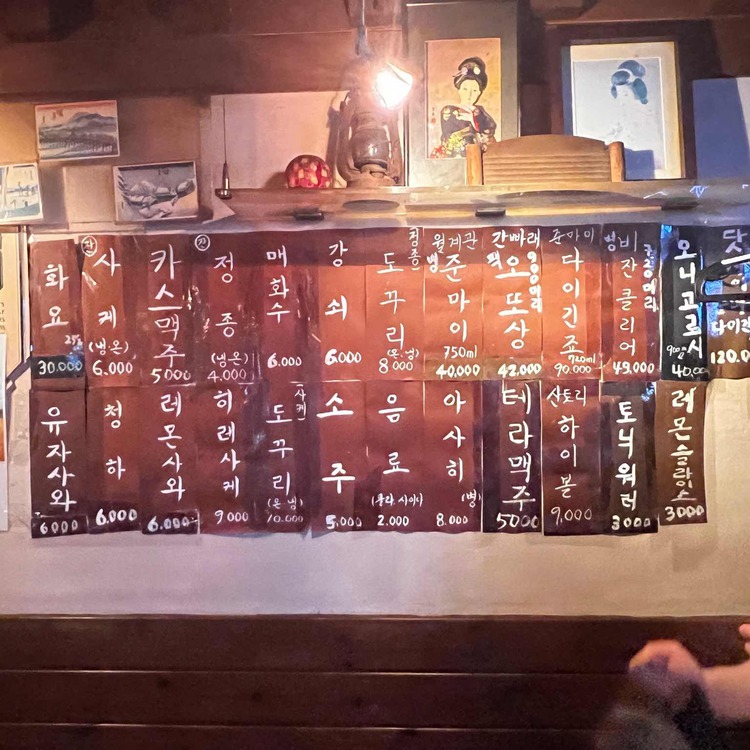 화요 25% 30.000
잔 사케 (냉.온) 6.000
카스맥주 5000
잔 정종 (냉온) 4.000
매화수 6.000
강쇠 6.000
정종 도꾸리 (온.냉) 8000
월계관 준마이 750ml 40,000
간빠레 오또상 900미리 42.000
준마이 다이긴죠 720ml 90.000
비잔클리어 49,000
오니고로시 900ml 40,000
닷 다이긴 120.0
유자사와 6000
청하 6.000
레몬사와 6.000
히레사케 9000
(사케) 도꾸리 (온냉) 10.000
소주 5.000
음료 (콜라.사이다) 2.000
아사히 (병) 8.000
테라맥주 5000
산토리 하이볼 9,000
토닉워터 3000
레몬슬라이스 3000